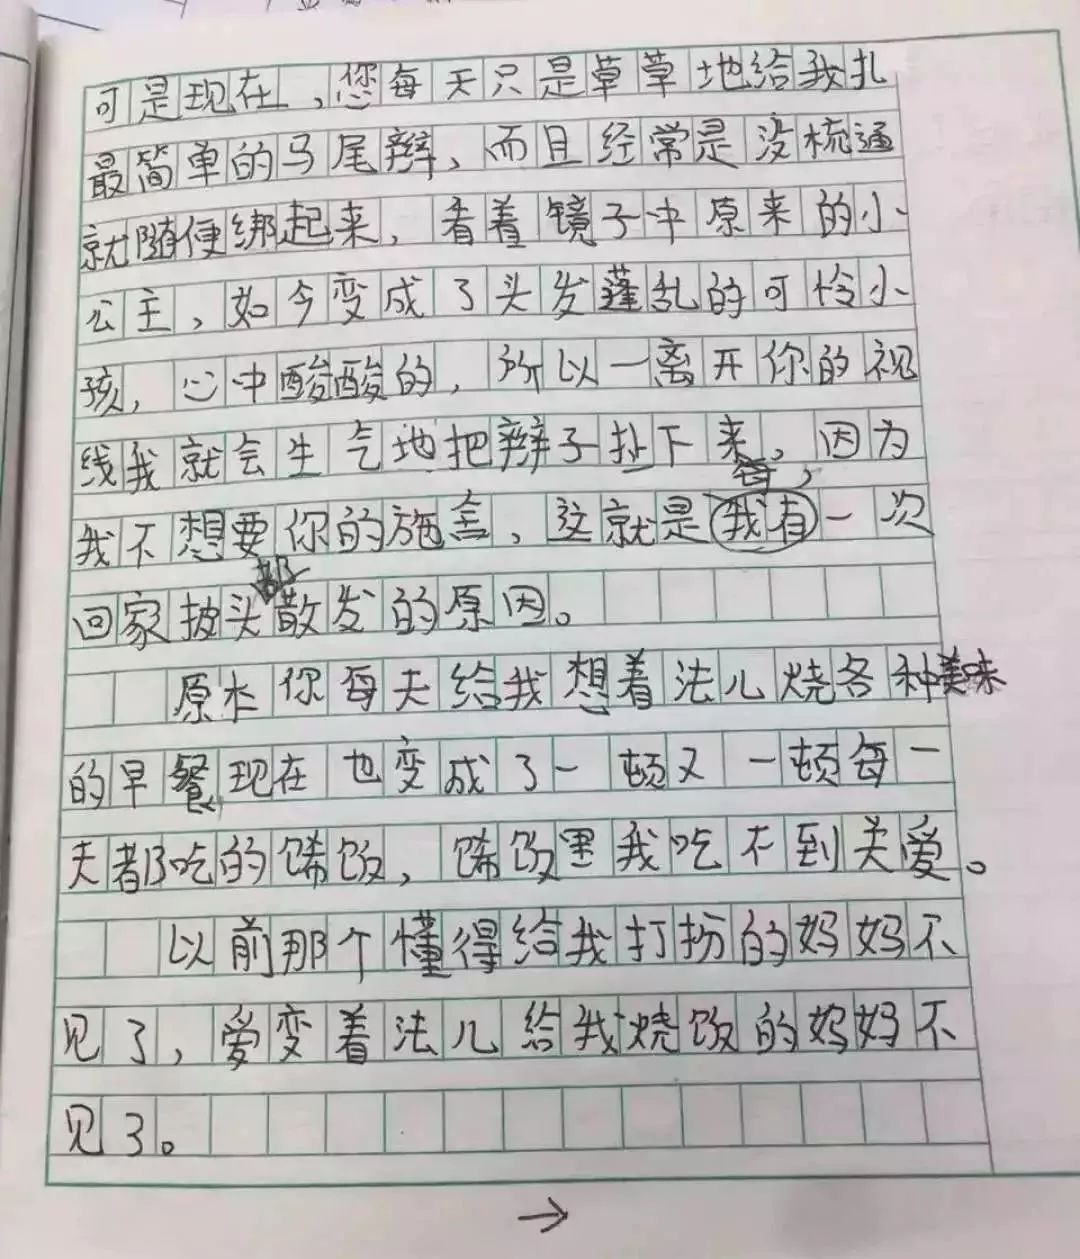 可是现在,您每天只是草草地给我扎
最简单的马尾辫,而且经常是没梳通
就随便绑起来,看着镜子中原来的小
公主,如今变成了头发蓬乱的可怜小
孩,心中酸酸的,所以一离开你的视
线我就会生气地把辫子扯下来,因为
我不想要你的施舍,这就是我有一次
每
回家披头散发的原因。
都
原本你每天给我想着法儿烧各种美味
的早餐,现在也变成了一顿又一顿每一
天都吃的馊饭,馊饭里我吃不到关爱。
以前那个懂得给我打扮的妈妈不
见了,爱变着法儿给我烧饭的妈妈不
见了。
→